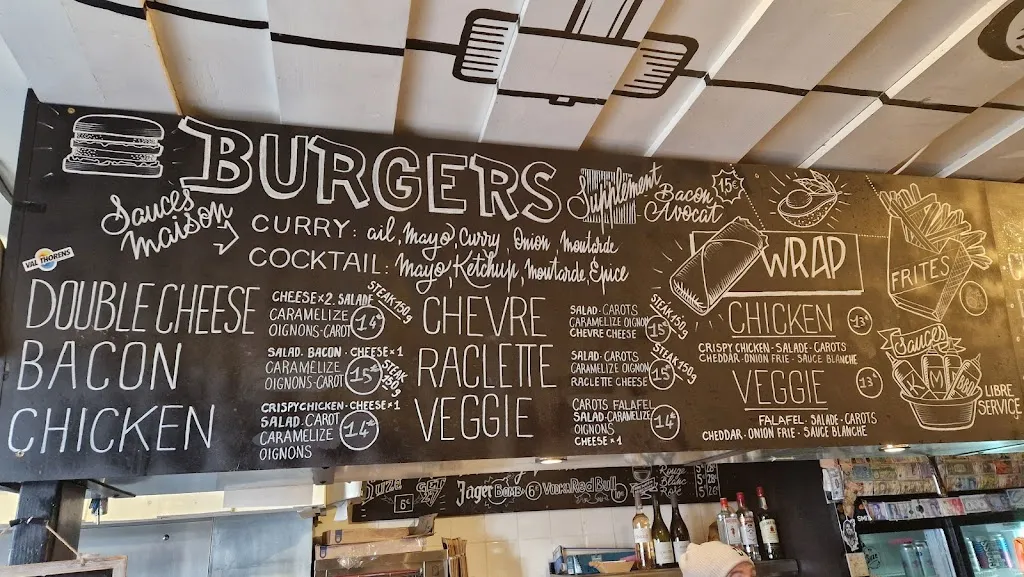 BURGERS
Sauces
maison
CURRY: ail, Mayo, Curry Onion Moutarde
COCKTAIL: Mayo, Ketchup, Moutarde, Épice
Supplément
Bacon
Avocat
VAL THORENS
DOUBLE CHEESE
CHEESE x 2. SALADE
CARAMELIZE
OIGNONS-CAROT
STEAK 150g
14€
BACON
SALAD. BACON. CHEESE x 1
CARAMELIZE
OIGNONS-CAROT
STEAK
150g
15€
CHICKEN
CRISPY CHICKEN - CHEESE x 1
SALAD. CAROT
CARAMELIZE
OIGNONS
14€
CHEVRE
SALAD - CAROTS
CARAMELIZE OIGNON
CHEVRE CHEESE
STEAK 150g
15€
RACLETTE
SALAD. CAROTS
CARAMELIZE OIGNON
RACLETTE CHEESE
STEAK 150g
15€
VEGGIE
CAROTS FALAFEL
SALAD - CARAMELIZE
OIGNONS
CHEESE x 1
14€
WRAP
CHICKEN
13€
CRISPY CHICKEN - SALADE - CAROTS
CHEDDAR - ONION FRIE - SAUCE BLANCHE
VEGGIE
13€
FALAFEL - SALADE - CAROTS
CHEDDAR - ONION FRIE - SAUCE BLANCHE
FRITES
Sauces
K M BBQ
LIBRE
SERVICE
Jager BOMB 6€ VODKA Red Bull
Rouge
Blanc
Rosé